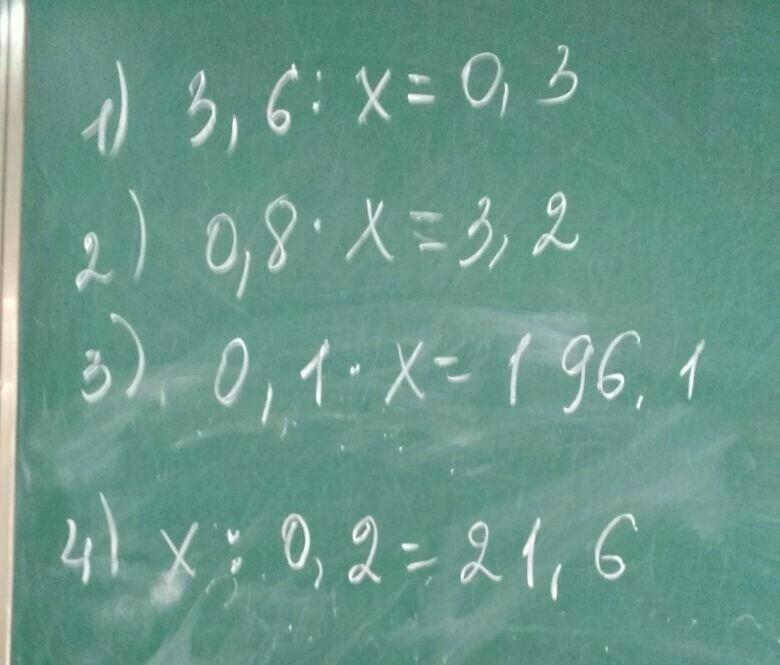 1) 3,6 : x = 0,3
2) 0,8 · x = 3,2
3) 0,1 · x = 196,1
4) x : 0,2 = 21,6